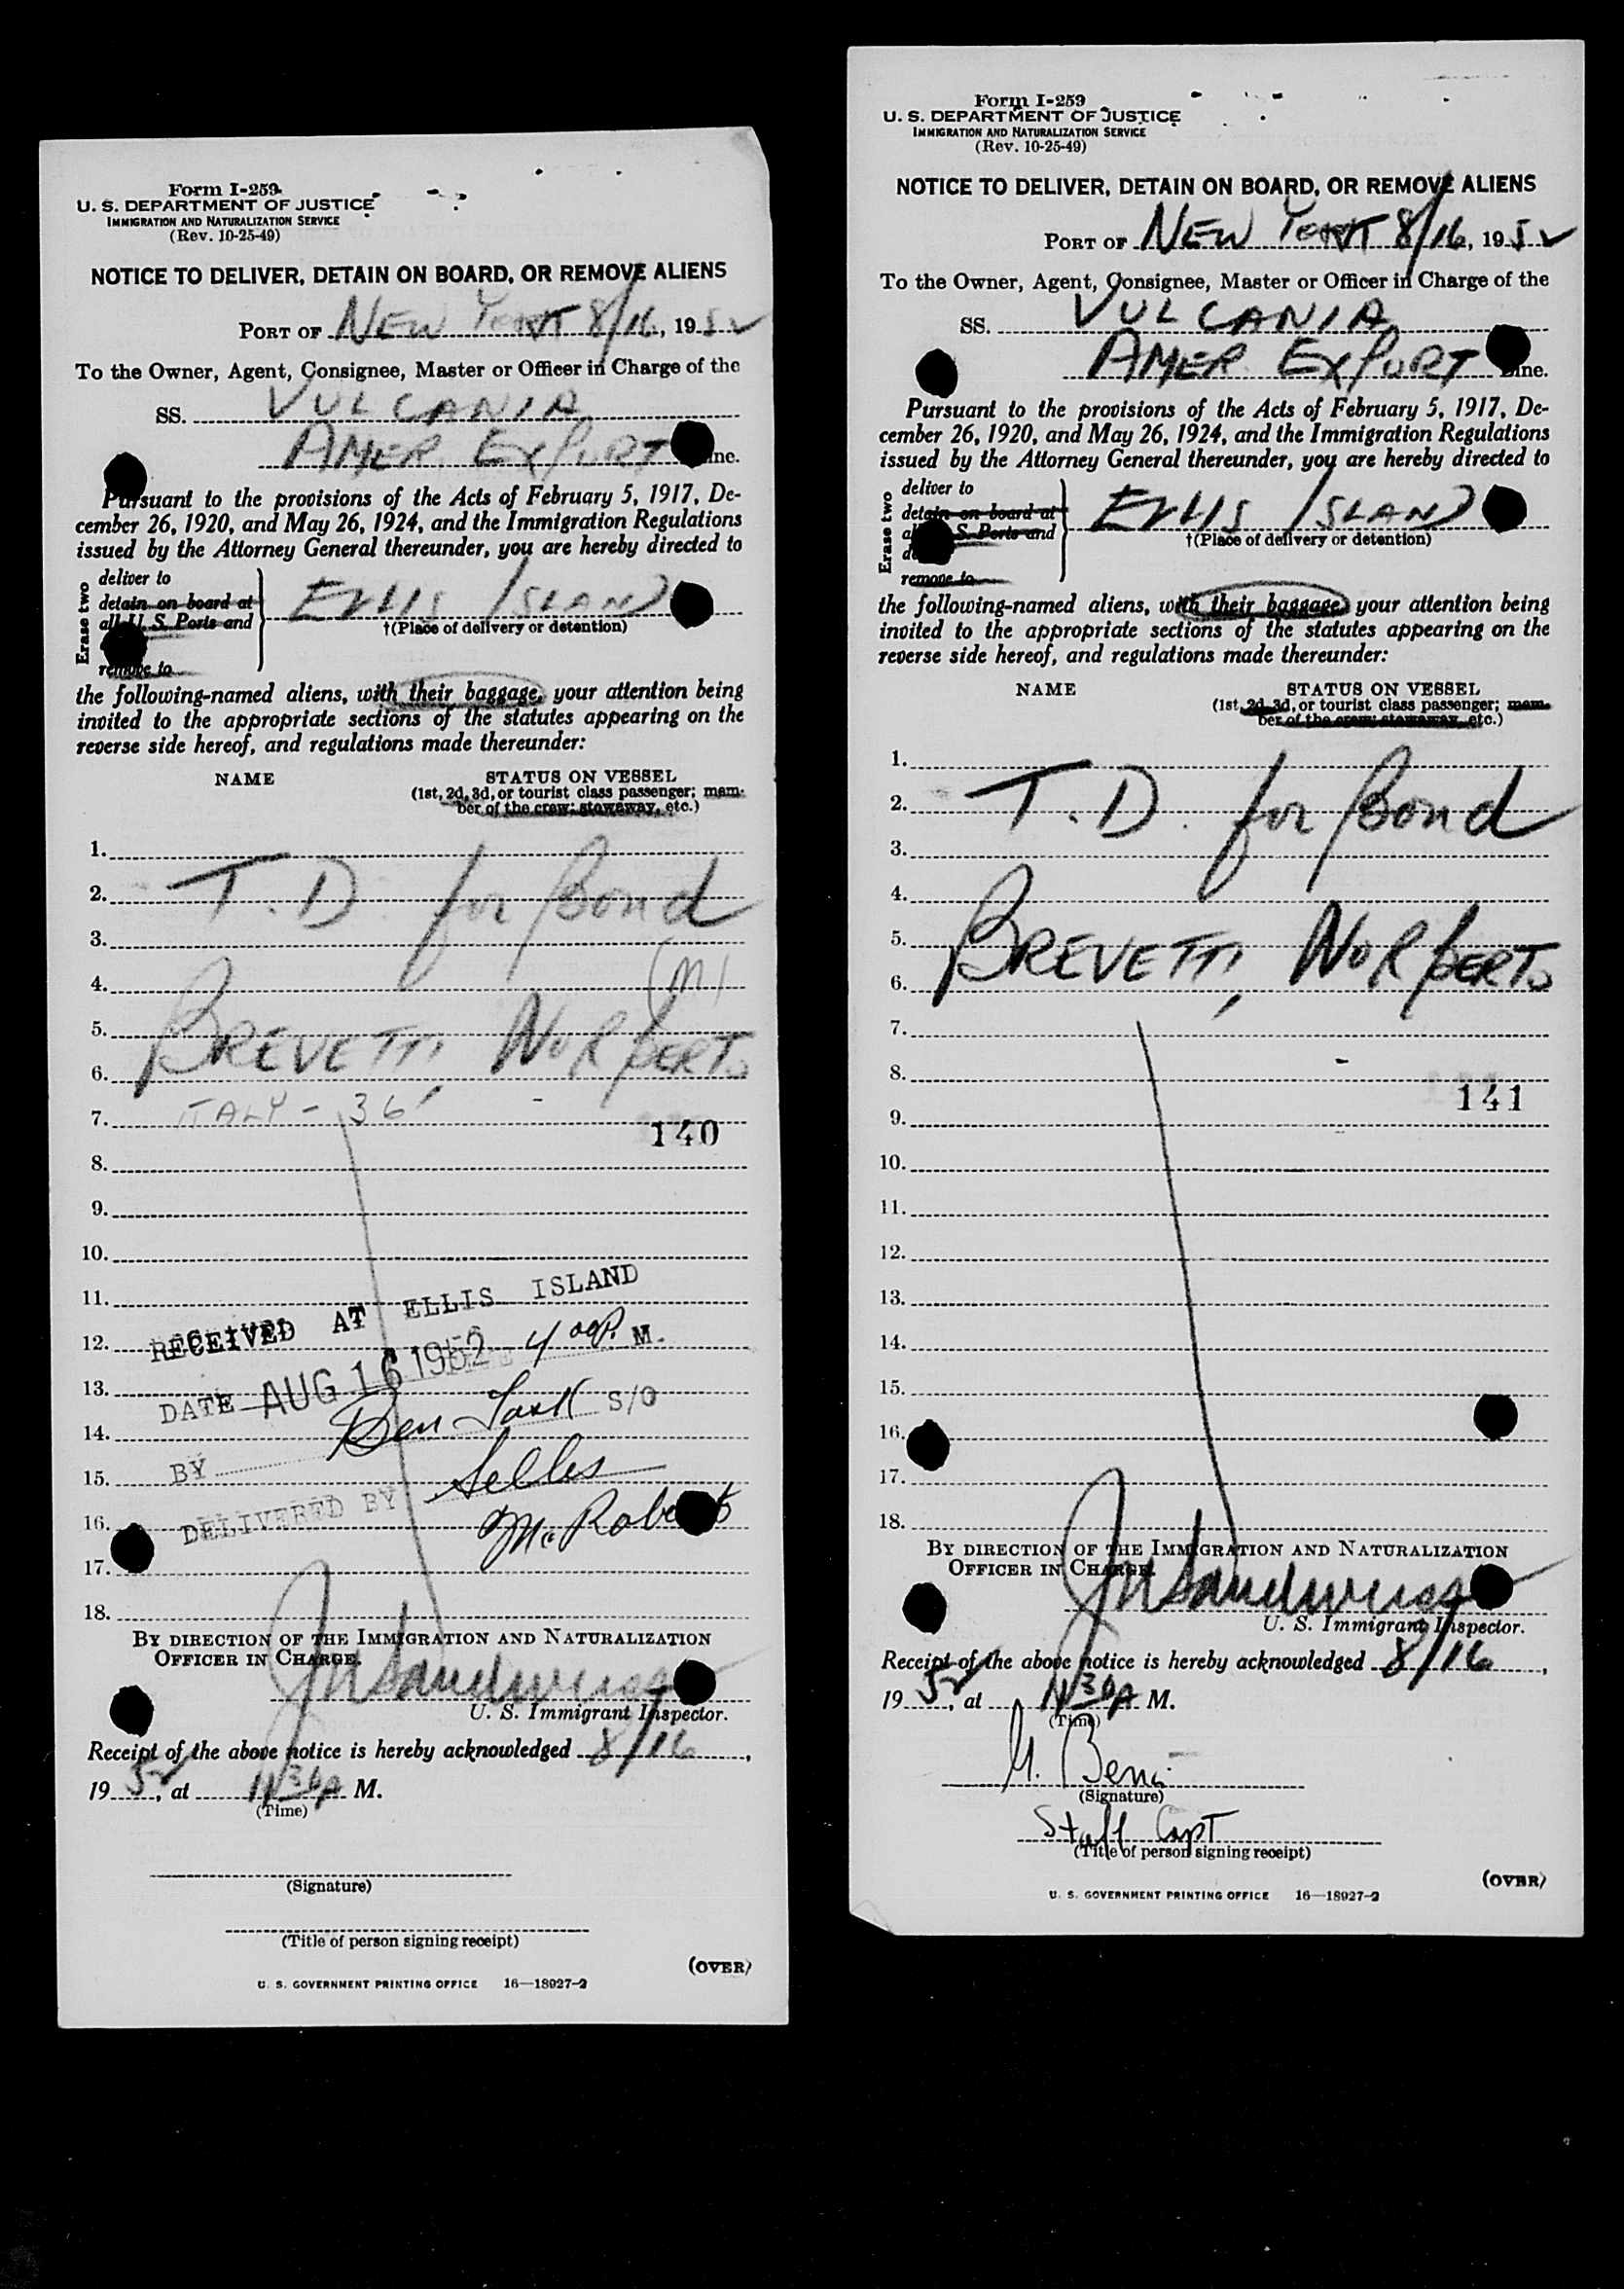 Form I-259
U. S. DEPARTMENT OF JUSTICE
IMMIGRATION AND NATURALIZATION SERVICE
(Rev. 10-25-49)
NOTICE TO DELIVER, DETAIN ON BOARD, OR REMOVE ALIENS
PORT OF NEW YORK 8/16, 1952
To the Owner, Agent, Consignee, Master or Officer in Charge of the
SS. VULCANIA
AMER. EXPORT Line.
Pursuant to the provisions of the Acts of February 5, 1917, De-
cember 26, 1920, and May 26, 1924, and the Immigration Regulations
issued by the Attorney General thereunder, you are hereby directed to
Erase two
deliver to
detain on board at
all U. S. Ports and
remove to
ELLIS ISLAND
†(Place of delivery or detention)
the following-named aliens, with their baggage, your attention being
invited to the appropriate sections of the statutes appearing on the
reverse side hereof, and regulations made thereunder:
NAME STATUS ON VESSEL
(1st, 2d, 3d, or tourist class passenger; mem-
ber of the crew; stowaway, etc.)
1.
2. T.D. for Bond
3.
4. (M)
5. BREVETTI, NORBERTO
6.
7. ITALY - 36
140
8.
9.
10.
11.
RECEIVED AT ELLIS ISLAND
12.
DATE AUG 16 1952 4 00 P. M.
13.
14.
BY Ben Task S/O
15.
DELIVERED BY Selles
16. McRoberts
17.
18.
BY DIRECTION OF THE IMMIGRATION AND NATURALIZATION
OFFICER IN CHARGE.
U. S. Immigrant Inspector.
Receipt of the above notice is hereby acknowledged 8/16,
1952, at 11 30 A M.
(Time)
(Signature)
(Title of person signing receipt)
(OVER)
U. S. GOVERNMENT PRINTING OFFICE 16—18927-2
Form I-259
U. S. DEPARTMENT OF JUSTICE
IMMIGRATION AND NATURALIZATION SERVICE
(Rev. 10-25-49)
NOTICE TO DELIVER, DETAIN ON BOARD, OR REMOVE ALIENS
PORT OF NEW YORK 8/16, 1952
To the Owner, Agent, Consignee, Master or Officer in Charge of the
SS. VULCANIA
AMER. EXPORT Line.
Pursuant to the provisions of the Acts of February 5, 1917, De-
cember 26, 1920, and May 26, 1924, and the Immigration Regulations
issued by the Attorney General thereunder, you are hereby directed to
Erase two
deliver to
detain on board at
all U. S. Ports and
remove to
ELLIS ISLAND
†(Place of delivery or detention)
the following-named aliens, with their baggage, your attention being
invited to the appropriate sections of the statutes appearing on the
reverse side hereof, and regulations made thereunder:
NAME STATUS ON VESSEL
(1st, 2d, 3d, or tourist class passenger; mem-
ber of the crew; stowaway, etc.)
1.
2. T.D. for Bond
3.
4.
5. BREVETTI, NORBERTO
6.
7.
8.
141
9.
10.
11.
12.
13.
14.
15.
16.
17.
18.
BY DIRECTION OF THE IMMIGRATION AND NATURALIZATION
OFFICER IN CHARGE.
U. S. Immigrant Inspector.
Receipt of the above notice is hereby acknowledged 8/16,
1952, at 11 30 A M.
(Time)
(Signature)
Staff Capt
(Title of person signing receipt)
(OVER)
U. S. GOVERNMENT PRINTING OFFICE 16—18927-2